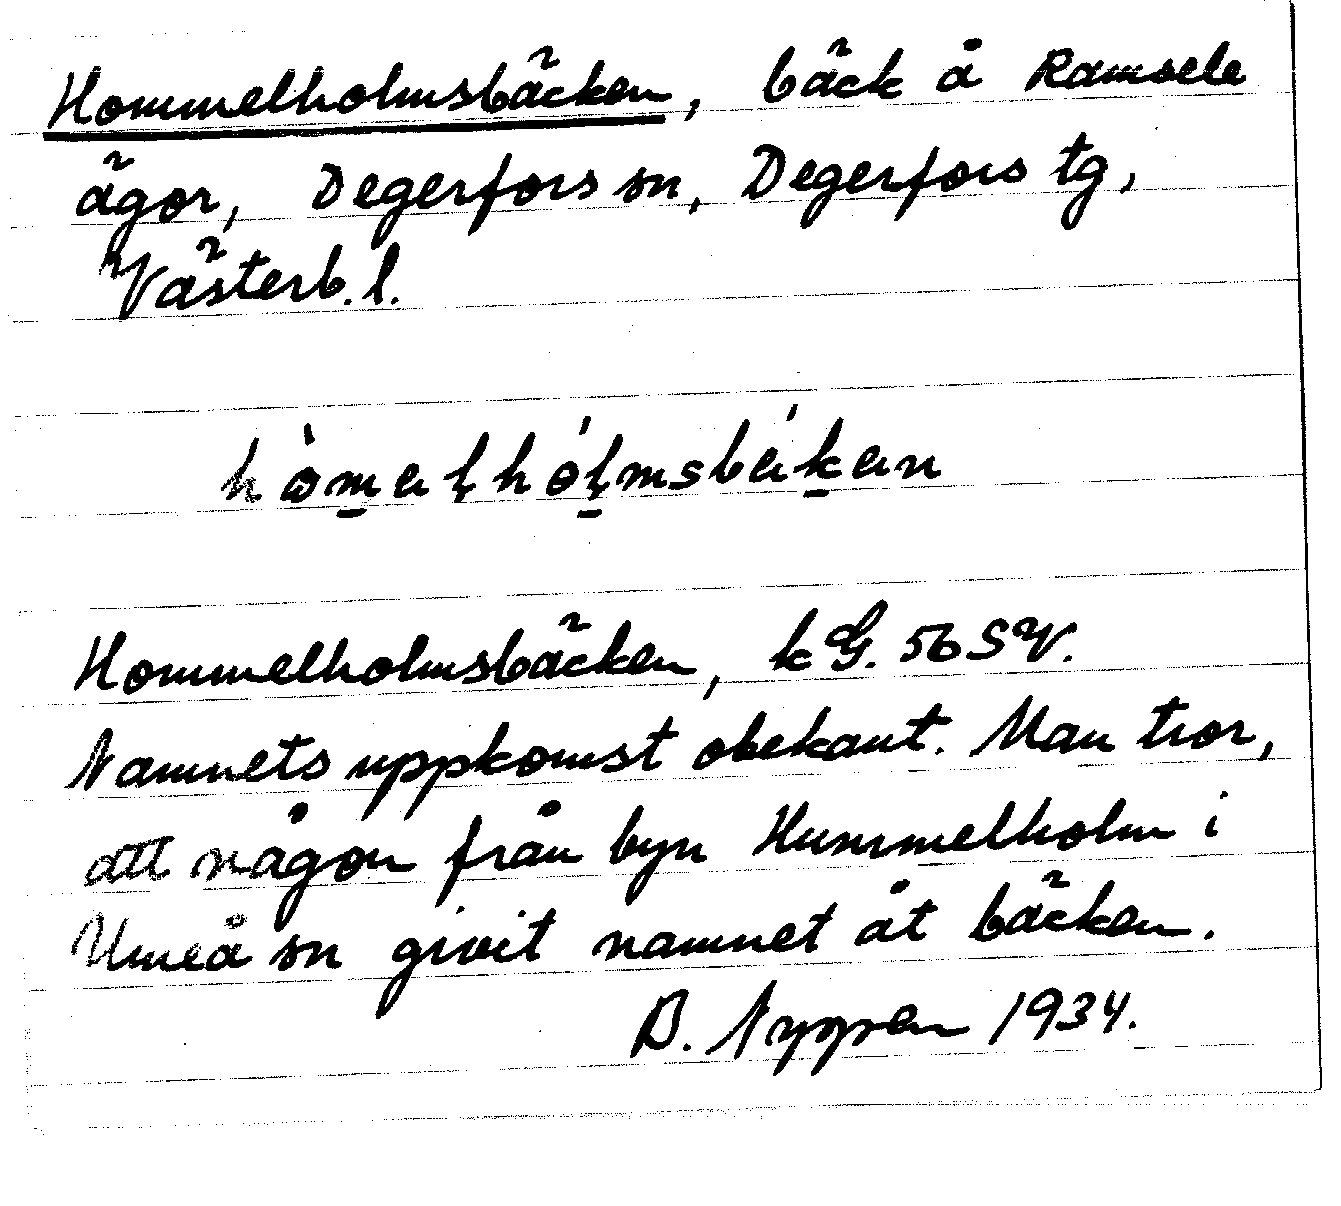 Hommelholmsbäcken, bäck å Ramsele
ägor, Degerfors sn, Degerfors tg,
Västerb. l.
hòmelhólmsbéken
Hommelholmsbäcken, kG. 56 SV.
Namnets uppkomst obekant. Man tror,
att någon från byn Hummelholm i
Umeå sn givit namnet åt bäcken.
B. Nygren 1934.